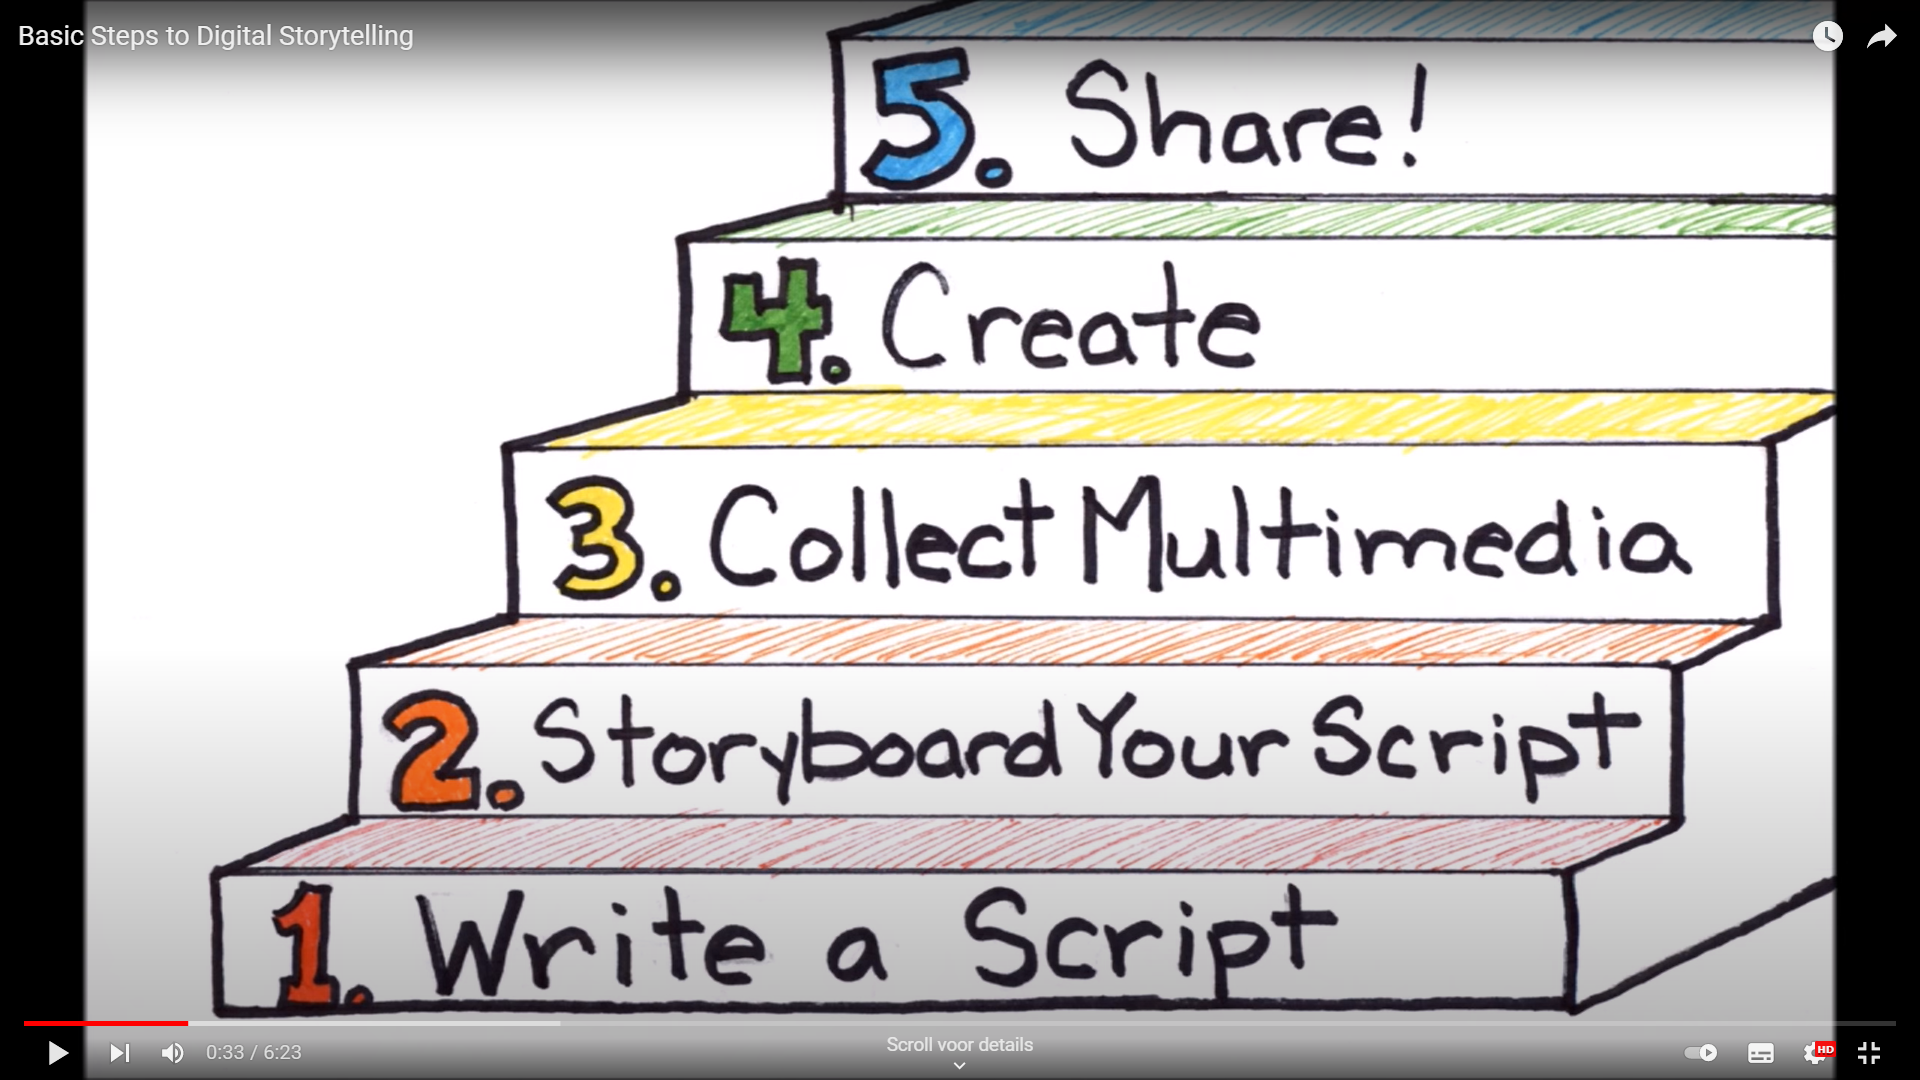 Basic Steps to Digital Storytelling
5. Share!
4. Create
3. Collect Multimedia
2. Storyboard Your Script
1. Write a Script
0:33 / 6:23
Scroll voor details
HD